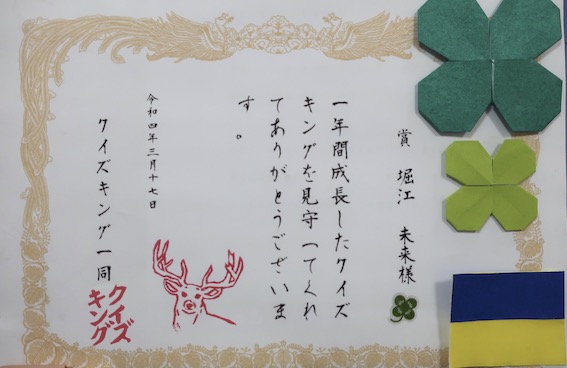 賞　堀江　未来様
一年間成長したクイズ
キングを見守ってくれ
てありがとうございま
す。
令和四年三月十七日
クイズキング一同
クイズ
キング